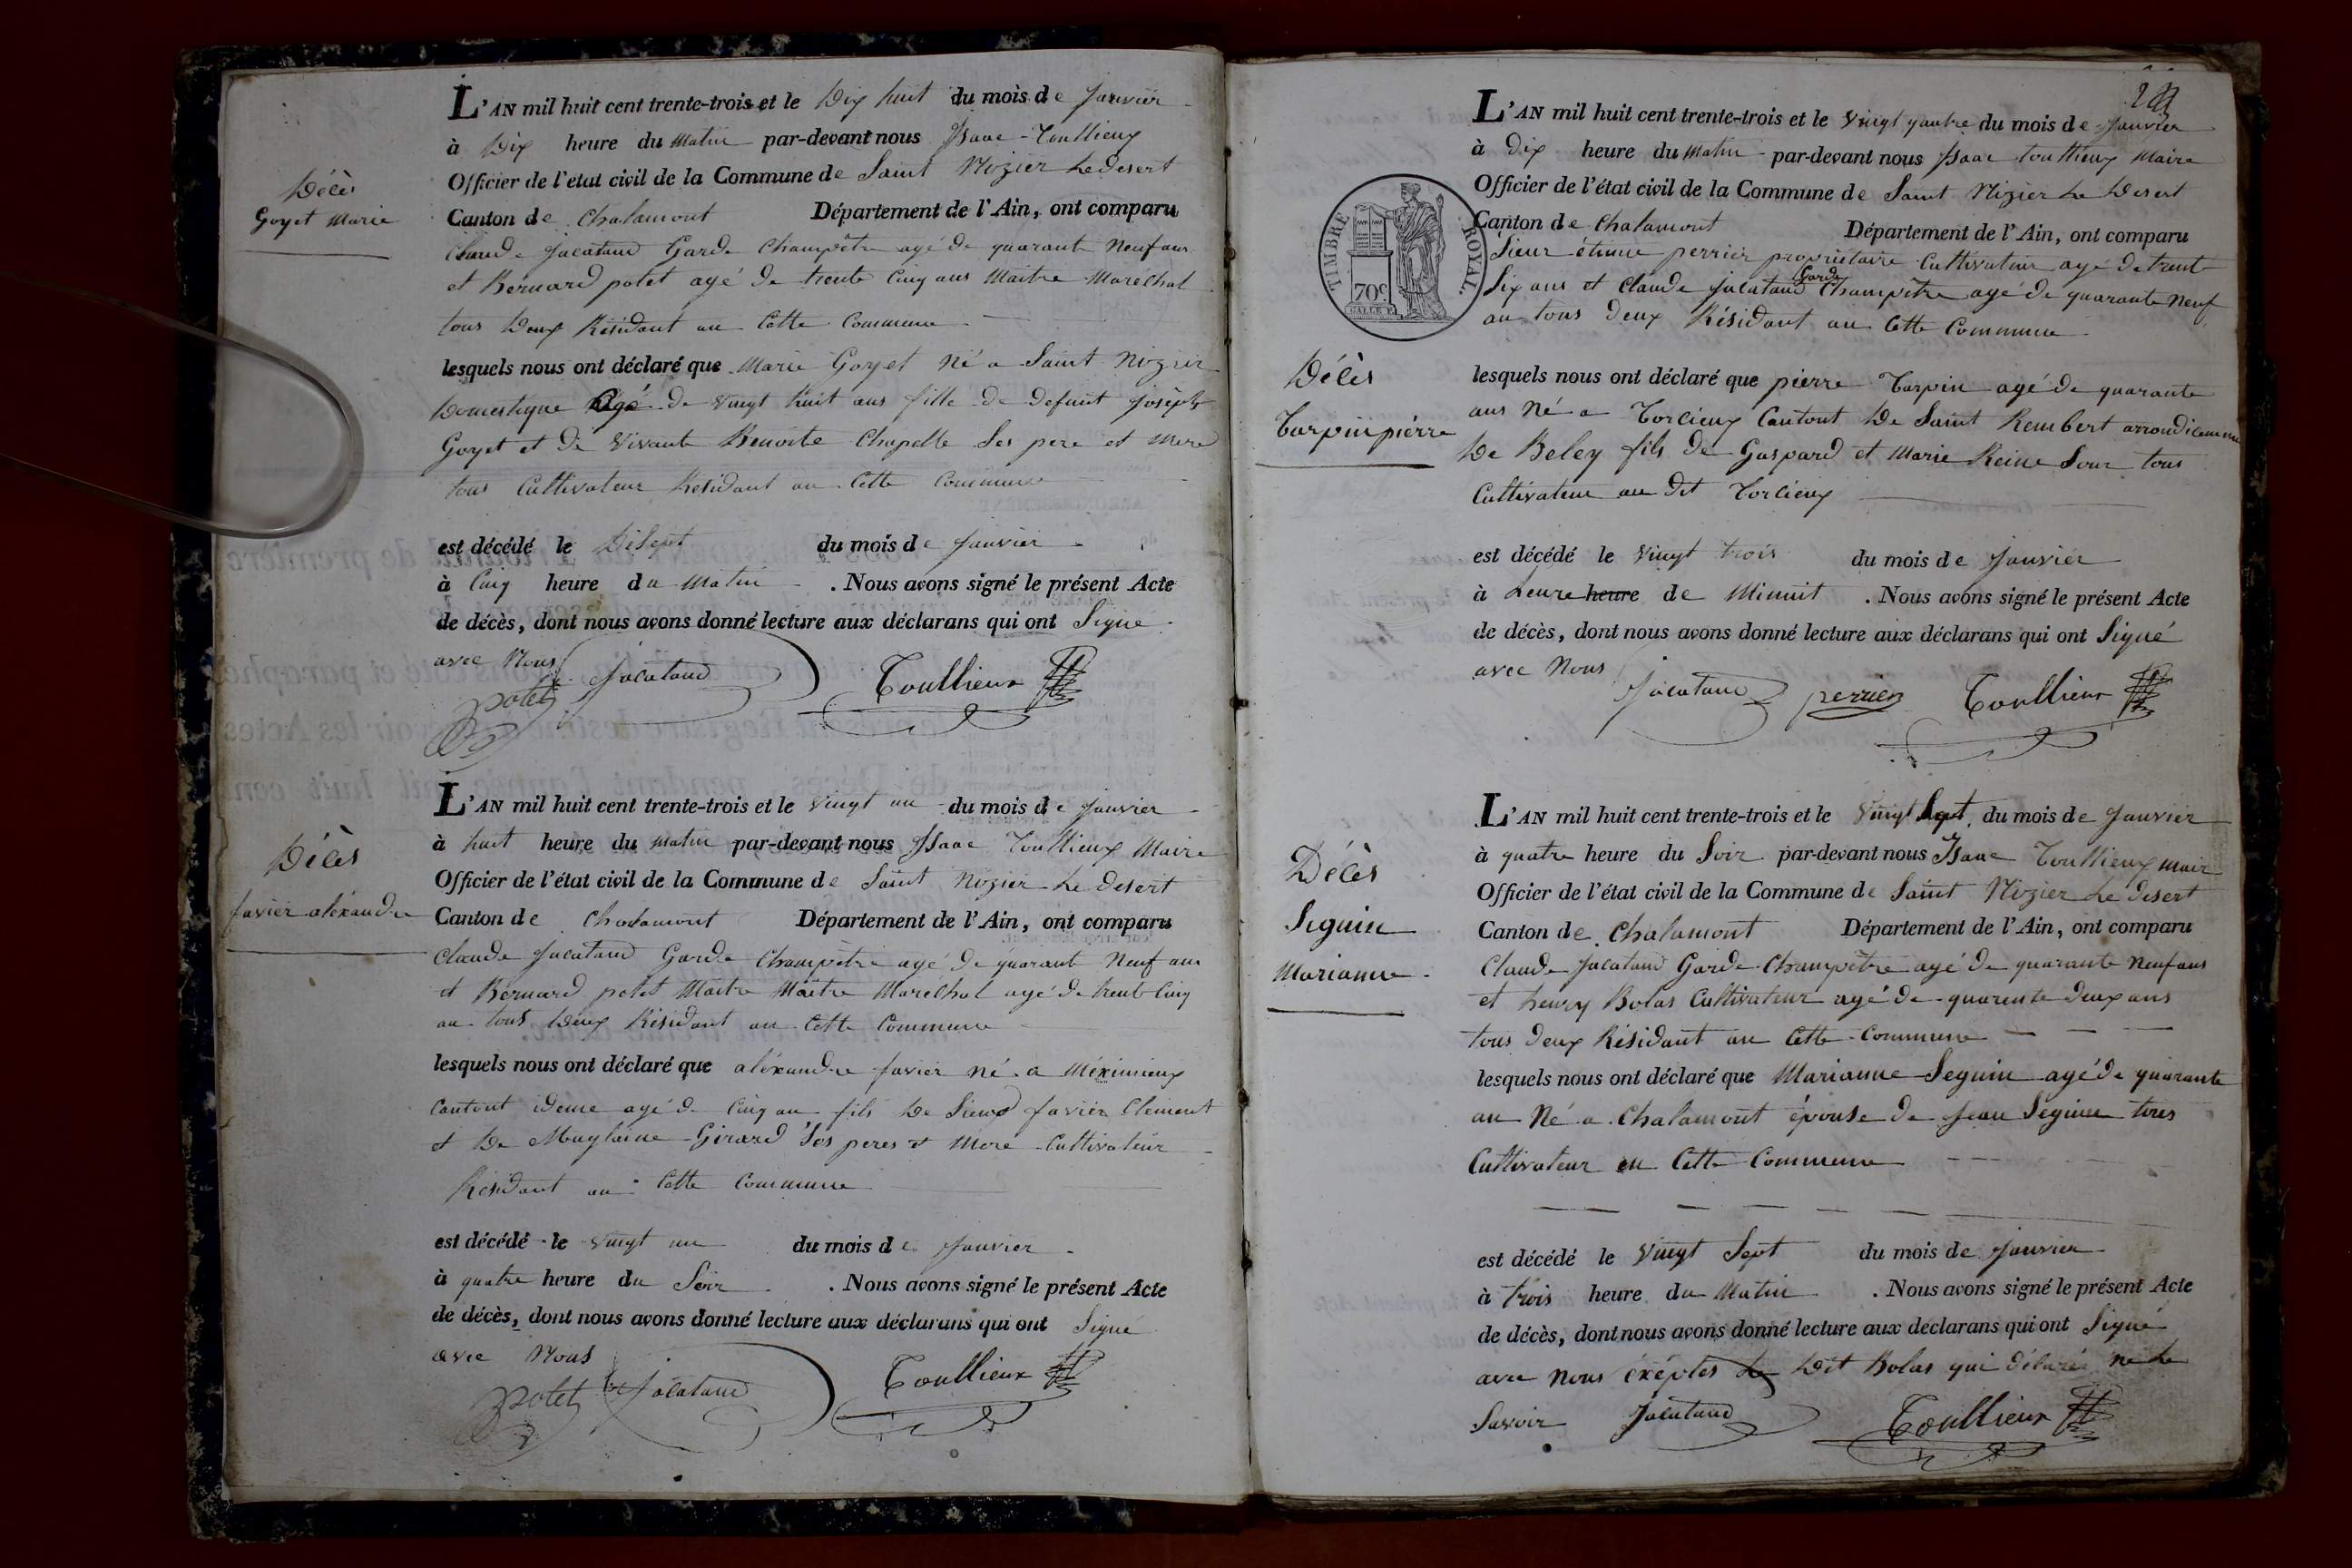 L'AN mil huit cent trente-trois et le Dix huit du mois de janvier
à Dix heure du Matin par-devant nous Isaac Toullieux
Officier de l'état civil de la Commune de Saint Nizier Le desert
Canton de Chalamont Département de l'Ain, ont comparu
Claude Jacataud Garde Champêtre agé de quarante Neuf ans
et Bernard potet agé de trente Cinq ans Maitre Marechal
tous Deux Résidant au Cette Commune
Décès
Goyet Marie
lesquels nous ont déclaré que Marie Goyet Né a Saint Nizier
Domestique agé de vingt huit ans fille de defunt joseph
Goyet et de Vivante Benoite Chapelle Ses pere et Mere
tous Cultivateur Residant au Cette Commune
est décédé le Disept du mois de janvier
à Cinq heure du Matin . Nous avons signé le présent Acte
de décès, dont nous avons donné lecture aux déclarans qui ont Signé
avec Nous
potet Jacataud Toullieux
L'AN mil huit cent trente-trois et le vingt un du mois de janvier
à huit heure du matin par-devant nous Isaac Toullieux Maire
Officier de l'état civil de la Commune de Saint Nizier Le desert
Canton de Chalamont Département de l'Ain, ont comparu
Claude Jacataud Garde Champêtre agé de quarant Neuf ans
et Bernard potet Maitre Maitre Marechal agé de trente Cinq
an tous Deux Résidant au Cette Commune
Décès
favier aléxandre
lesquels nous ont déclaré que aléxandre favier né a Méximieux
Cantont idème agé de Cinq an fils De Sieur favier Clément
et De Maglaine Girard Ses peres et Mere Cultivateur
Résidant au Cette Commune
est décédé le vingt un du mois de janvier
à quatre heure du Soir . Nous avons signé le présent Acte
de décès, dont nous avons donné lecture aux déclarans qui ont Signé
avec Nous
potet Jacataud Toullieux
L'AN mil huit cent trente-trois et le vingt quatre du mois de janvier
à dix heure du matin par-devant nous Isaac Toullieux Maire
Officier de l'état civil de la Commune de Saint Nizier Le Desert
Canton de Chalamont Département de l'Ain, ont comparu
Sieur étienne perrier propriétaire Cultivateur agé de trente
Garde
Six ans et Claude Jacataud Champêtre agé de quarante Neuf
an tous deux Résidant au Cette Commune
TIMBRE ROYAL.
70c
Décès
Tarpin pierre
lesquels nous ont déclaré que pierre Tarpin agé de quarante
ans Né a Torcieux Cantont De Saint Rembert
De Beley fils De Gaspard et Marie Reine Sour tous
Cultivateur au dit Torcieux
est décédé le vingt trois du mois de janvier
à Leure heure de Minuit . Nous avons signé le présent Acte
de décès, dont nous avons donné lecture aux déclarans qui ont Signé
avec Nous
Jacataud perrier Toullieux
L'AN mil huit cent trente-trois et le vingt Sept du mois de janvier
à quatre heure du Soir par-devant nous Isaac Toullieux mair
Officier de l'état civil de la Commune de Saint Nizier Le desert
Canton de Chalamont Département de l'Ain, ont comparu
Claude Jacataud Garde Champêtre agé de quarante Neuf ans
et henry Bolas Cultivateur agé de quarente deux ans
tous deux Résidant au Cette Commune
Décès
Seguin
Marianne
lesquels nous ont déclaré que Marianne Seguin agé de quarante
an Né a Chalamont épouse de Jean Seguin tous
Cultivateur en Cette Commune
est décédé le vingt Sept du mois de janvier
à trois heure du Matin . Nous avons signé le présent Acte
de décès, dont nous avons donné lecture aux déclarans qui ont Signé
avec Nous éxéptes Le Dit Bolas qui délaré ne Le
Savoir Jacataud Toullieux